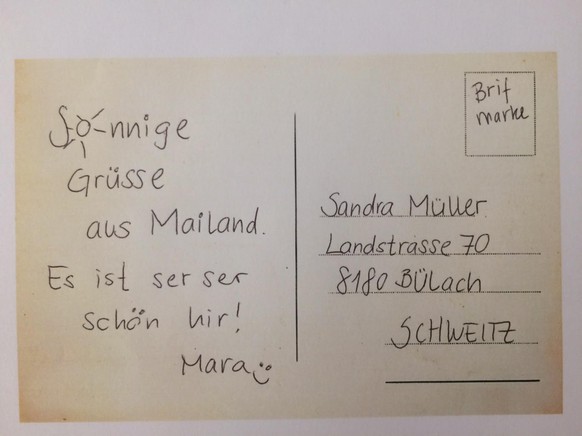 Sonnige
Grüsse
aus Mailand.
Es ist ser ser
schön hir!
Mara
Brif
marke
Sandra Müller
Landstrasse 70
8180 BÜLach
SCHWEITZ